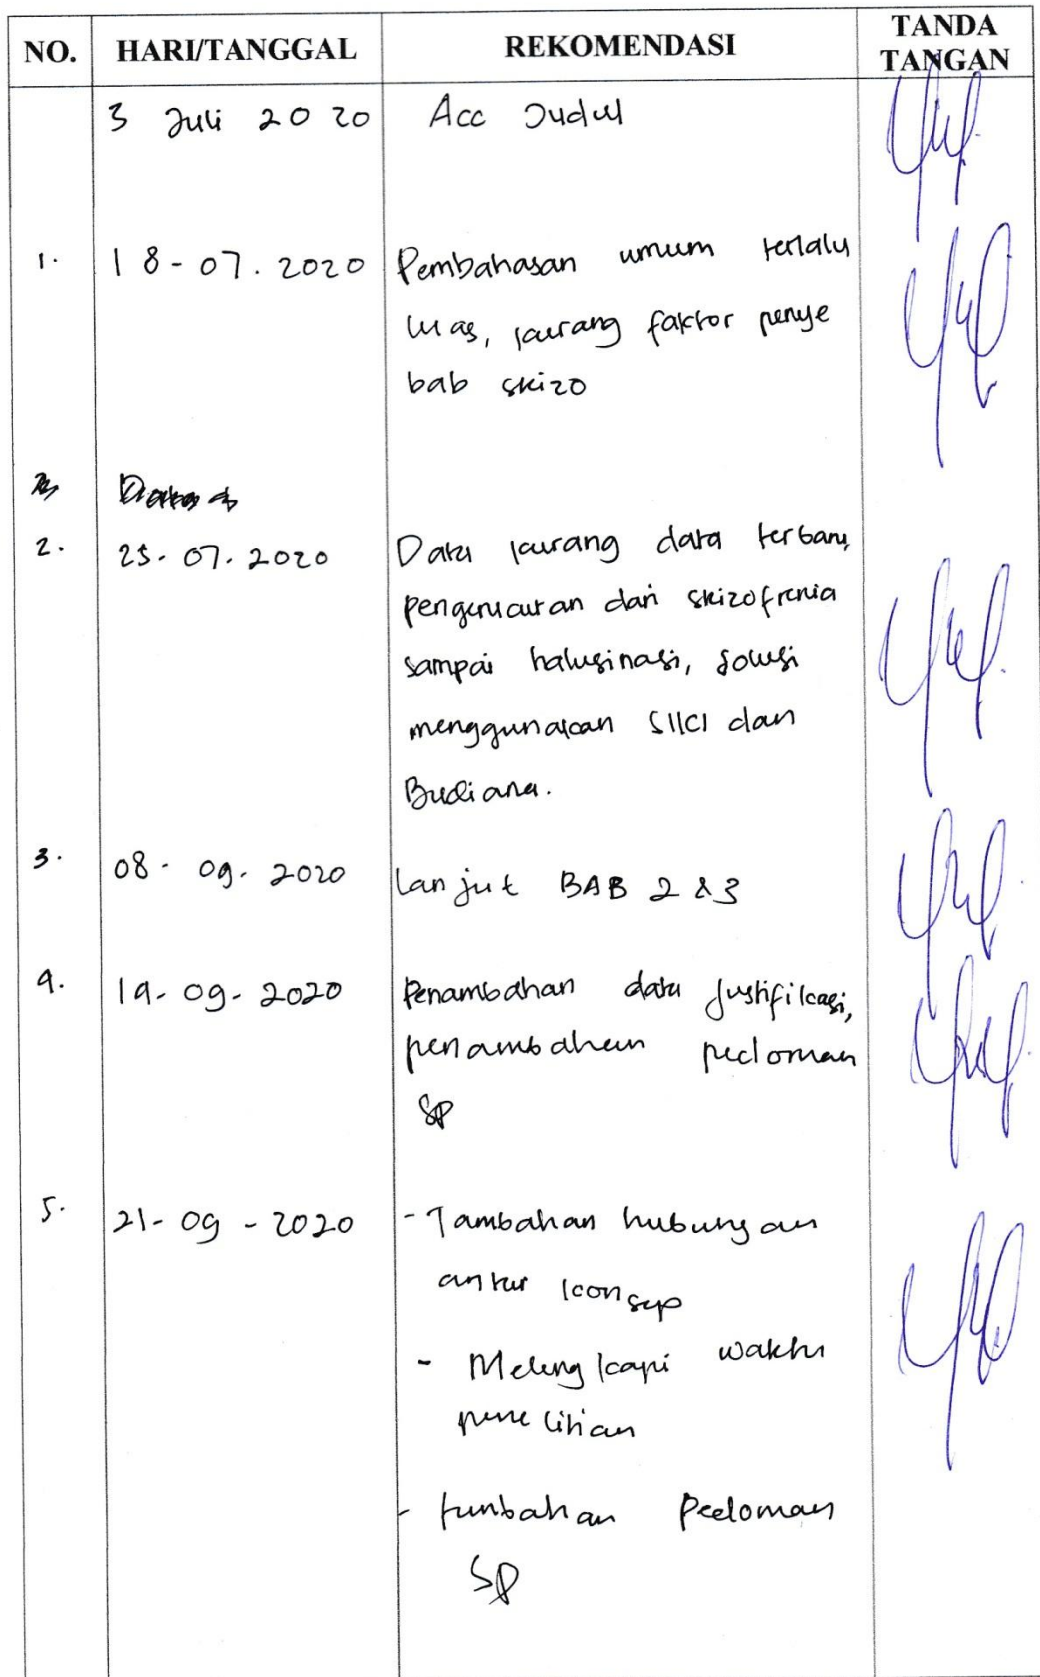 NO. HARI/TANGGAL REKOMENDASI TANDA TANGAN
3 Juli 2020 Acc Judul
1. 18-07.2020 Pembahasan umum terlalu
luas, kurang faktor penye
bab skizo
2. 25-07.2020 Data kurang data terbaru,
pengerucutan dari skizofrenia
sampai halusinasi, solusi
menggunakan SIKI dan
Budiana.
3. 08-09-2020 lanjut BAB 2 & 3
4. 19-09-2020 Penambahan data justifikasi,
penambahan pedoman
SP
5. 21-09-2020 - Tambahan hubungan
antar konsep
- Melengkapi waktu
penelitian
- tambahan Pedoman
SP